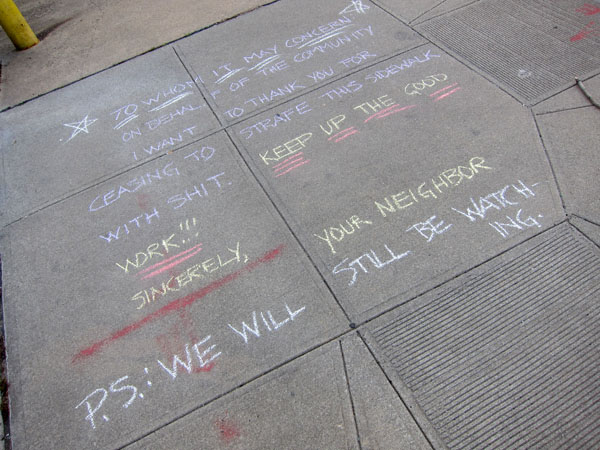 TO WHOM IT MAY CONCERN
ON BEHALF OF THE COMMUNITY
I WANT TO THANK YOU FOR
CEASING TO STRAFE THIS SIDEWALK
WITH SHIT. KEEP UP THE GOOD
WORK!!!
SINCERELY, YOUR NEIGHBOR
P.S.: WE WILL STILL BE WATCH-
ING.